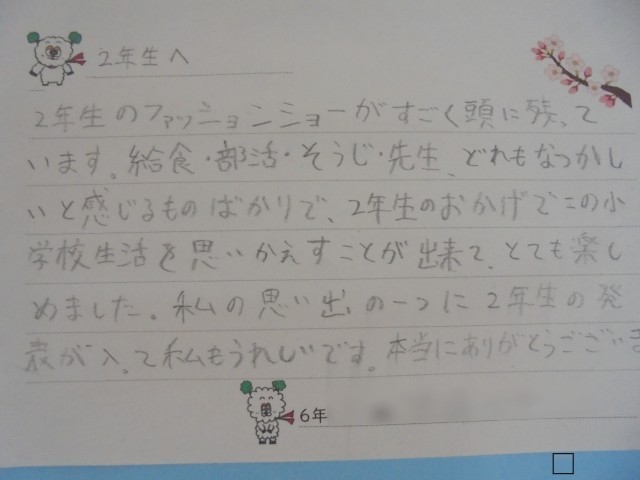 2年生へ
2年生のファッションショーがすごく頭に残って
います。給食・部活・そうじ・先生、どれもなつかし
いと感じるものばかりで、2年生のおかげでこの小
学校生活を思いかえすことが出来て、とても楽し
めました。私の思い出の一つに2年生の発
表が入って私もうれしいです。本当にありがとうござい
6年